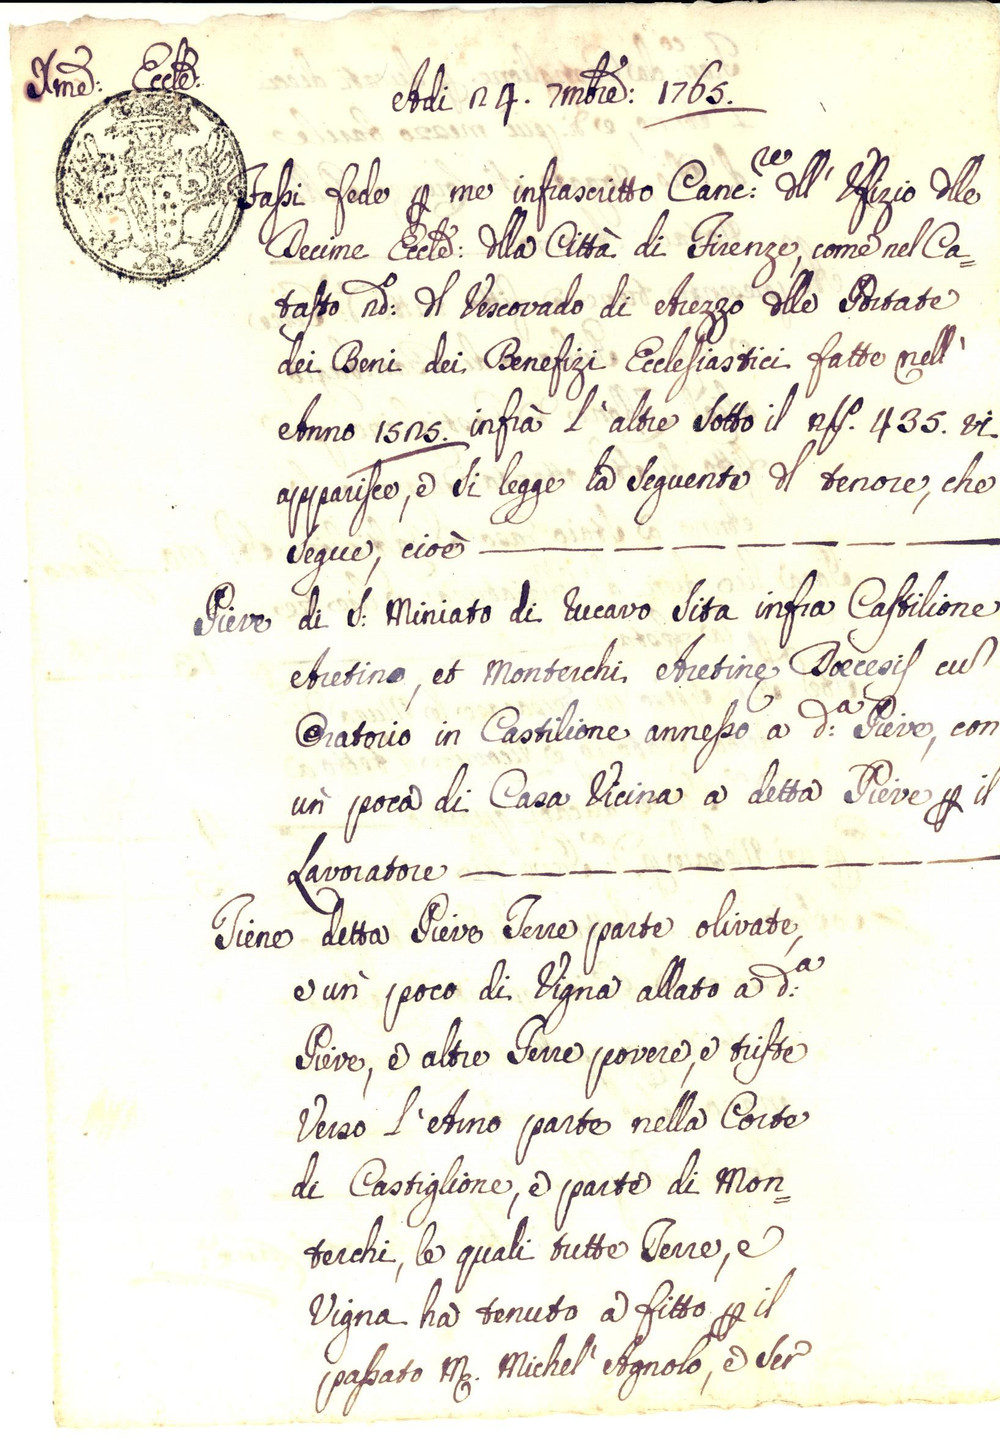 Xmẽ: Ecclẽ:
Adi 24. 7mbrẽ: 1765.
Fassi fede p me infrascritto Canc:re dll' Vfizio dlle
Decime Ecclẽ: dlla Città di Firenze, come nel Ca=
tasto nd: dl Vescovado di Arezzo dlle Portate
dei Beni dei Benefizi Ecclesiastici fatte nell'
Anno 1525. infrà l'altre sotto il nº. 435. vi
apparisce, e si legge la seguente dl tenore, che
segue, cioè
Pieve di S: Miniato di Rucavo sita infra Castilione
Aretino, et Monterchi Aretinę Dœcesis cũ
Oratorio in Castilione annesso a d:a Pieve, con
un poca di Casa Vicina a detta Pieve p il
Lavoratore
Tiene detta Pieve Terre parte olivate,
e un poco di Vigna allato a d:a
Pieve, e altre Terre povere, e triste
Verso l'Arno parte nella Corte
di Castiglione, e parte di Mon=
terchi, le quali tutte Terre, e
Vigna ha tenuto a fitto p il
passato M. Michel' Agnolo, e Ser